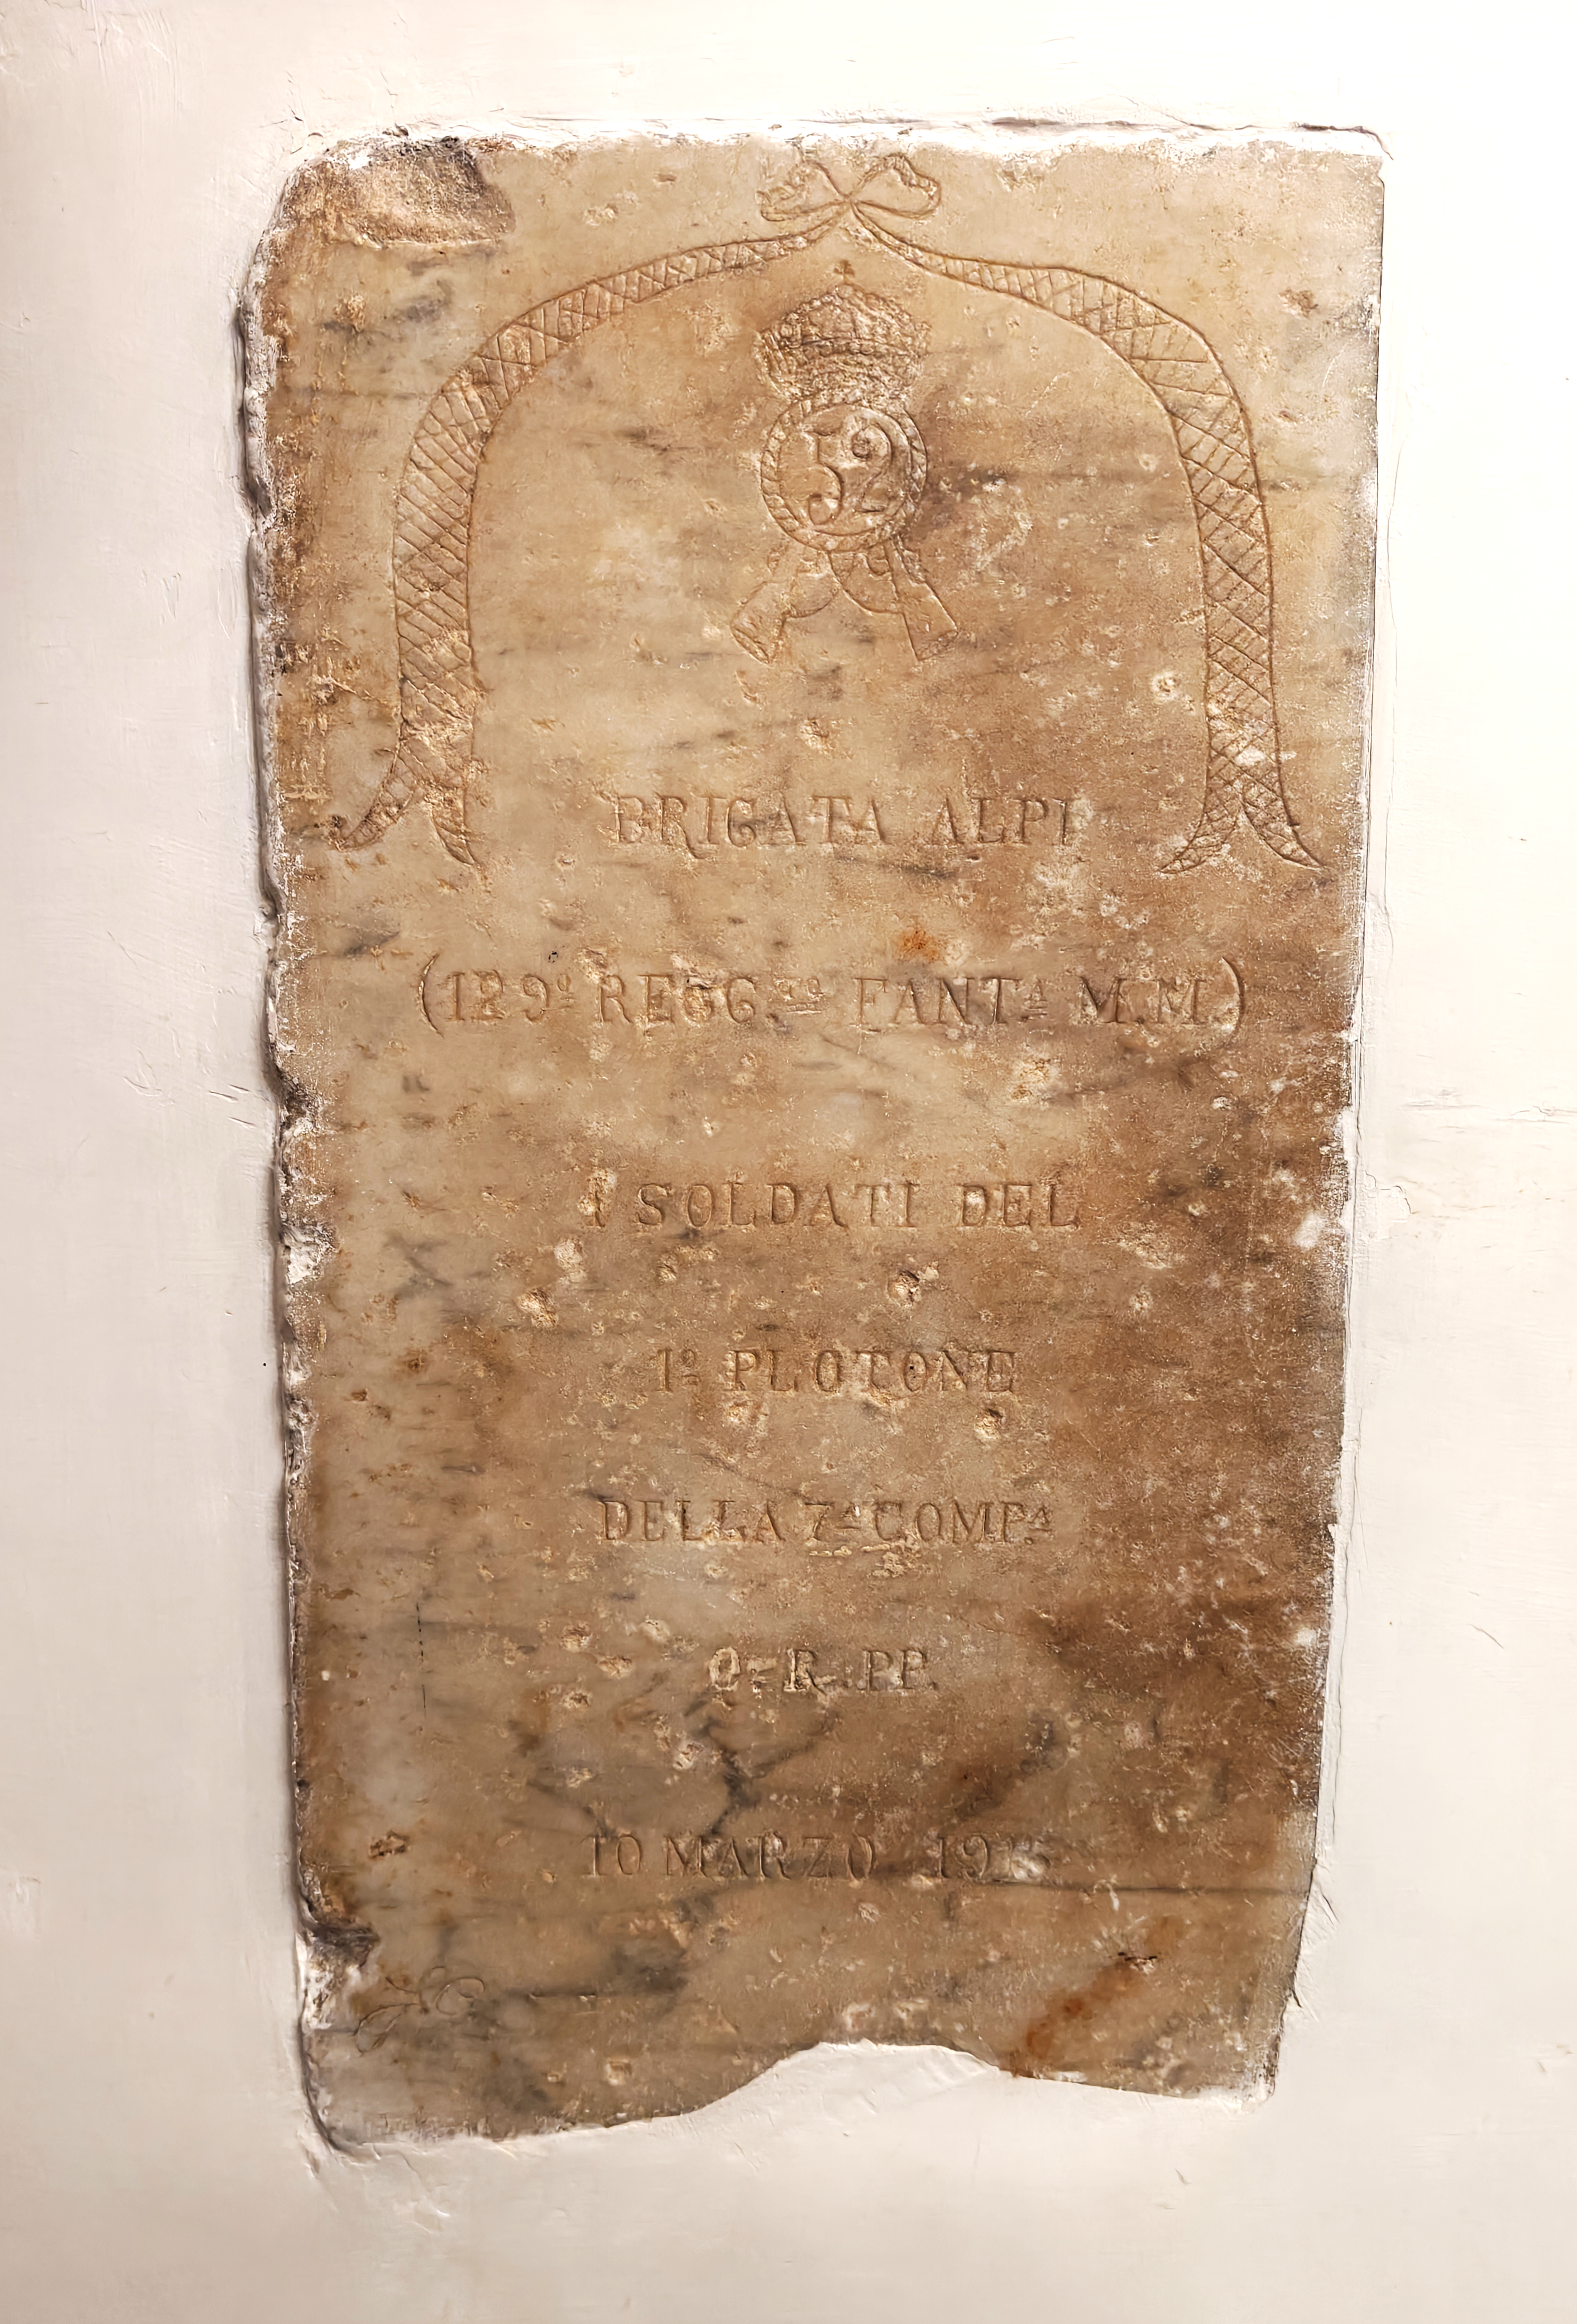 52
BRIGATA ALPI
(129º REGG.TO FANTA M.M.)
I SOLDATI DEL
1º PLOTONE
DELLA 7A COMP.A
Q. R. PP.
10 MARZO